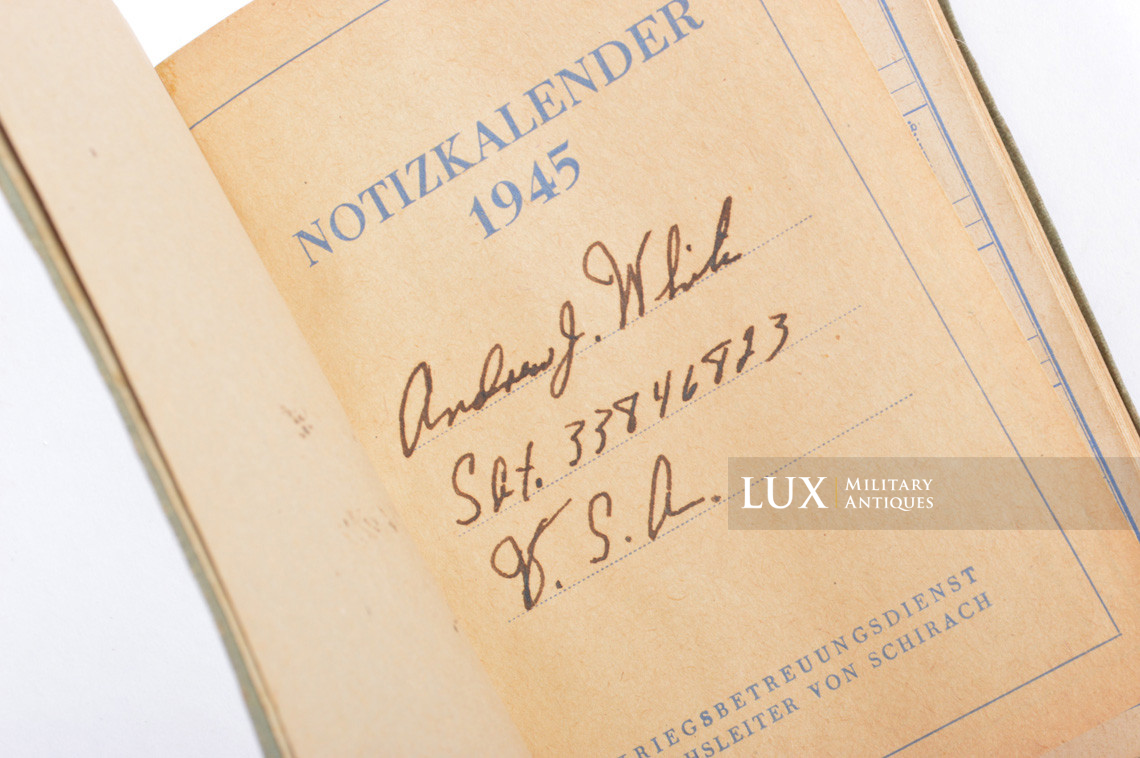 NOTIZKALENDER
1945
Andrew J. White
Sgt. 33846823
U. S. A.
LUX MILITARY
ANTIQUES
RIEGSBETREUUNGSDIENST
HSLEITER VON SCHIRACH